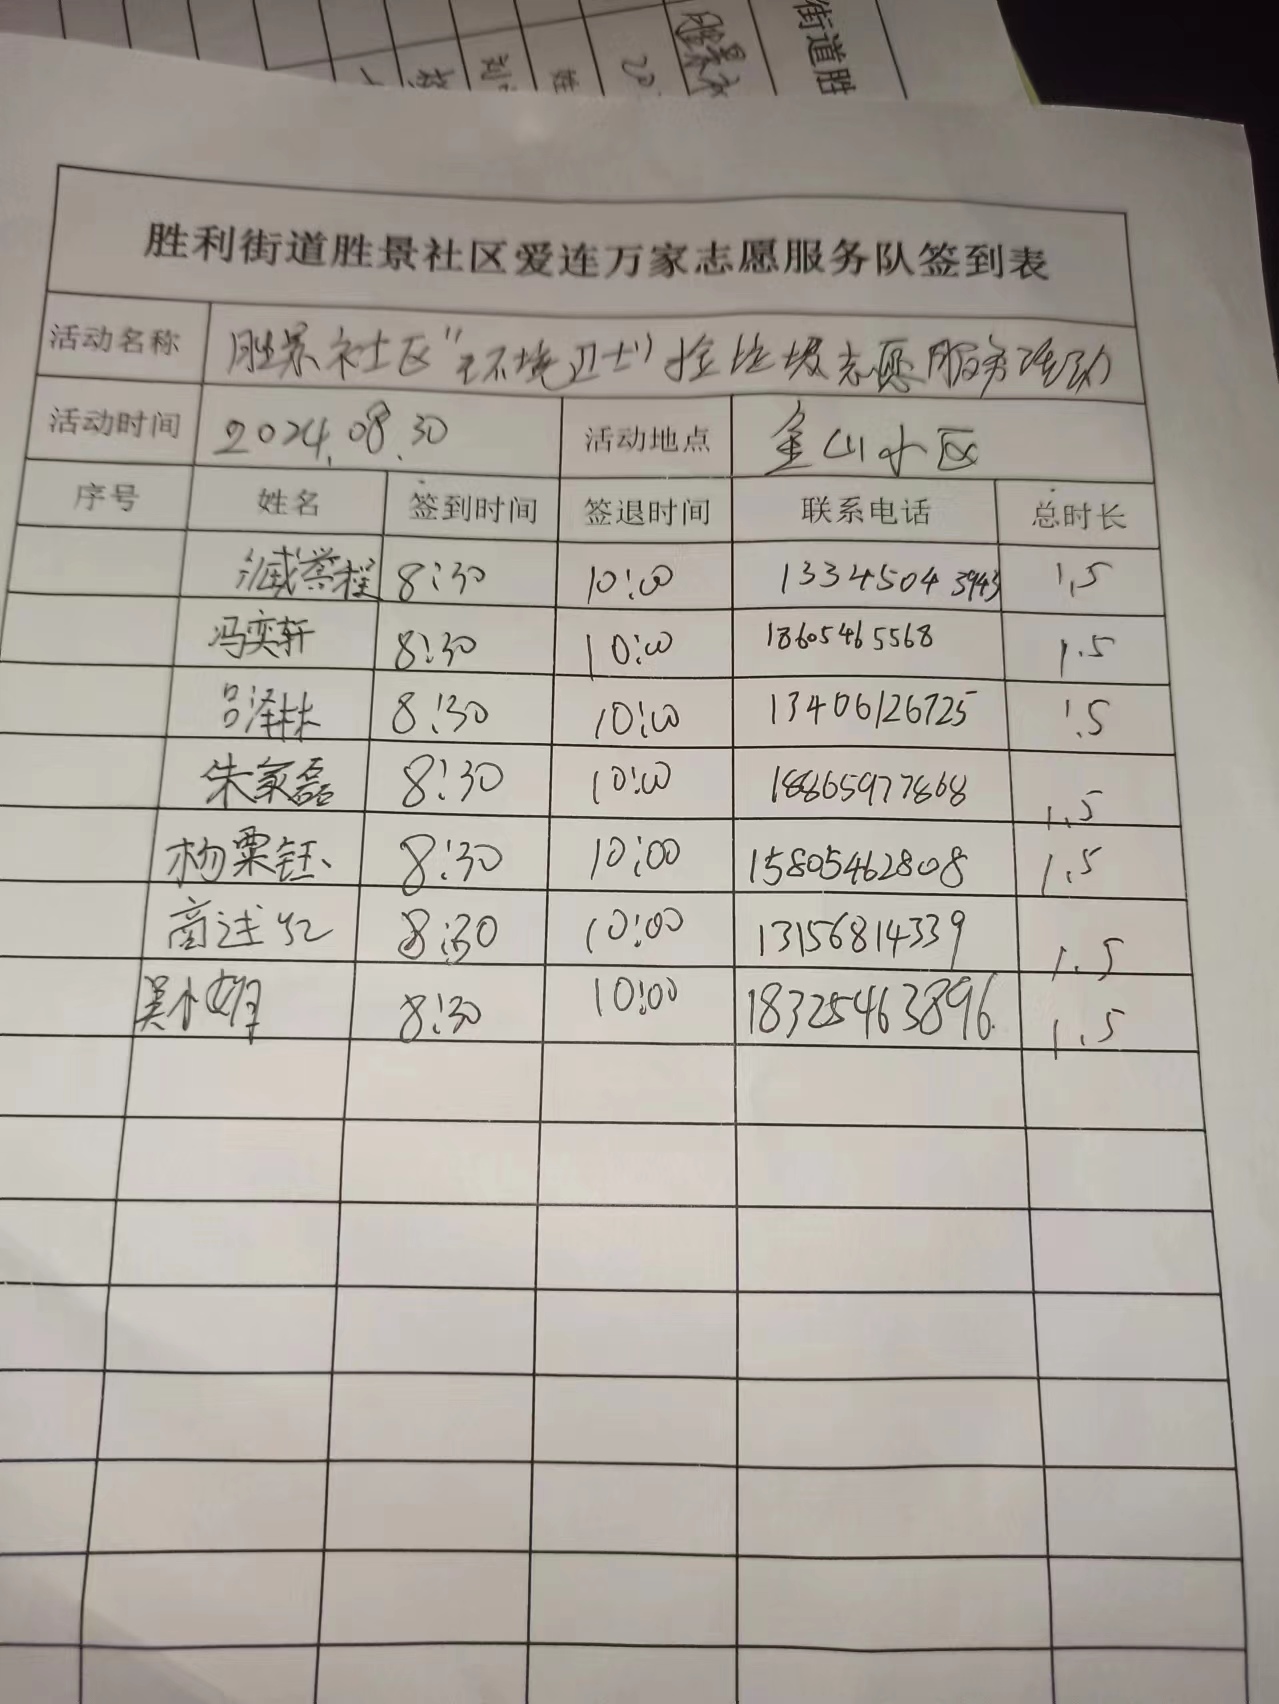 街道胜
胜景
20
姓
胜利街道胜景社区爱连万家志愿服务队签到表
活动名称 胜景社区“环境卫士”捡垃圾志愿服务活动
活动时间 2024.08.30 活动地点 金山小区
序号 姓名 签到时间 签退时间 联系电话 总时长
8:30 10:00 13345043943 1.5
冯奕轩 8:30 10:00 18605465568 1.5
吕泽林 8:30 10:00 13406126725 1.5
朱家磊 8:30 10:00 18865977868 1.5
杨粟钰 8:30 10:00 15805462808 1.5
商述红 8:30 10:00 13156814339 1.5
吴小明 8:30 10:00 18325463896 1.5